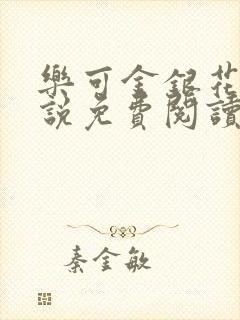 樂可金銀花
說免費閱讀
秦金敏